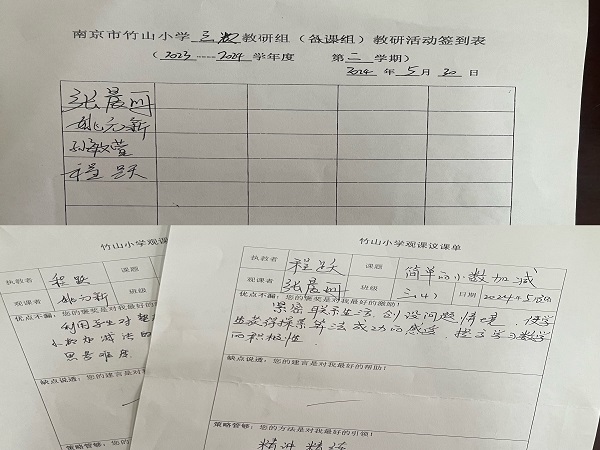 南京市竹山小学三数教研组（备课组）教研活动签到表
（2023----2024学年度 第二学期）
2024年5月30日
张晨丽
姚元新
孙敏萱
程跃
竹山小学观课
执教者 程跃 课题
观课者 班级
优点不漏：您的褒奖是对我最好的激励
利用学生对
小数加减法的
思考难度
缺点说透：您的建言是对我最好的帮助！
策略管够：您的方法是对我最
竹山小学观课议课单
执教者 程跃 课题 简单的小数加减
观课者 张晨丽 班级 三(4) 日期 2024年5月
优点不漏：您的褒奖是对我最好的激励
紧密联系生活，创设问题情境，使学
生获得探索算法成功的感透，提高学习数学
的积极性．
缺点说透：您的建言是对我最好的帮助！
策略管够：您的方法是对我最好的引领！
精讲精练